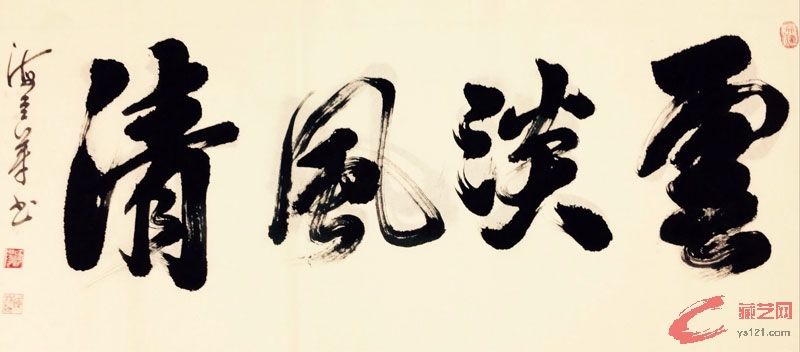 雲淡風清
藏艺网
ys121.com